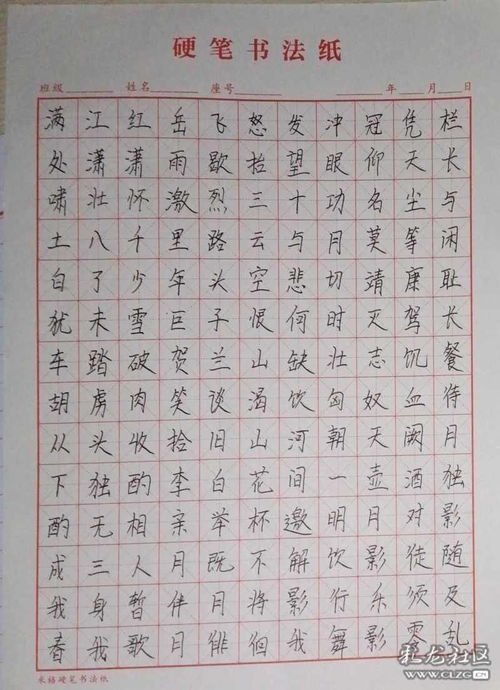 硬笔书法纸
班级 姓名 座号 年 月 日
满江红岳飞怒发冲冠凭栏
处潇潇雨歇抬望眼仰天长
啸壮怀激烈三十功名尘与
土八千里路云与月莫等闲
白了少年头空悲切靖康耻
犹未雪臣子恨何时灭驾长
车踏破贺兰山缺壮志饥餐
胡虏肉笑谈渴饮匈奴血待
从头收拾旧山河朝天阙月
下独酌李白花间一壶酒独
酌无相亲举杯邀明月对影
成三人月既不解饮影徒随
我身暂伴月将影行乐须及
春我歌月徘徊我舞影零乱
米格硬笔书法纸
社区
WWW.CLZG.CN